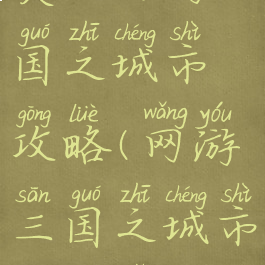 guó zhī chéng shì
国之城市
gōng lüè wǎng yóu
攻略(网游
sān guó zhī chéng shì
三国之城市